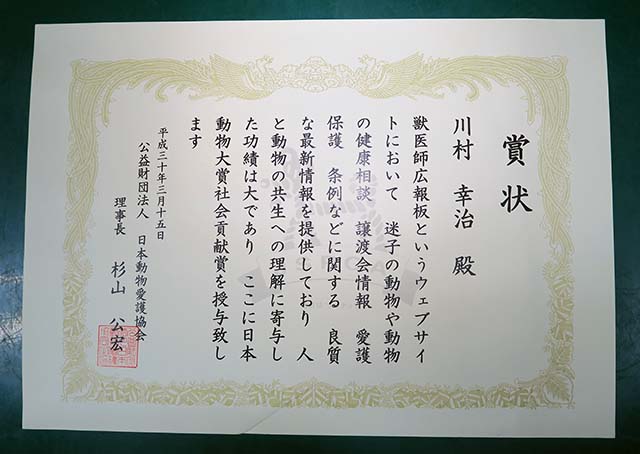 賞状
川村 幸治 殿
獣医師広報板というウェブサイ
トにおいて 迷子の動物や動物
の健康相談 譲渡会情報 愛護
保護 条例などに関する 良質
な最新情報を提供しており 人
と動物の共生への理解に寄与し
た功績は大であり ここに日本
動物大賞社会貢献賞を授与致し
ます
平成三十年三月十五日
公益財団法人 日本動物愛護協会
理事長 杉山 公宏